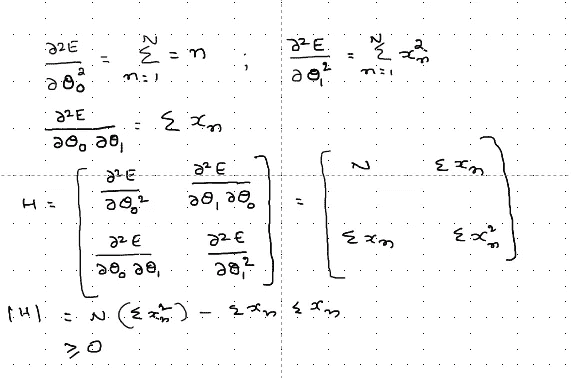 ∂²E/∂θ₀² = Σ_{n=1}^{N} = n ; ∂²E/∂θ₁² = Σ_{n=1}^{N} xₙ²
∂²E/∂θ₀ ∂θ₁ = Σ xₙ
H = [ ∂²E/∂θ₀² ∂²E/∂θ₁ ∂θ₀ ; ∂²E/∂θ₀ ∂θ₁ ∂²E/∂θ₁² ] = [ N Σ xₙ ; Σ xₙ Σ xₙ² ]
|H| = N (Σ xₙ²) - Σ xₙ Σ xₙ
≥ 0